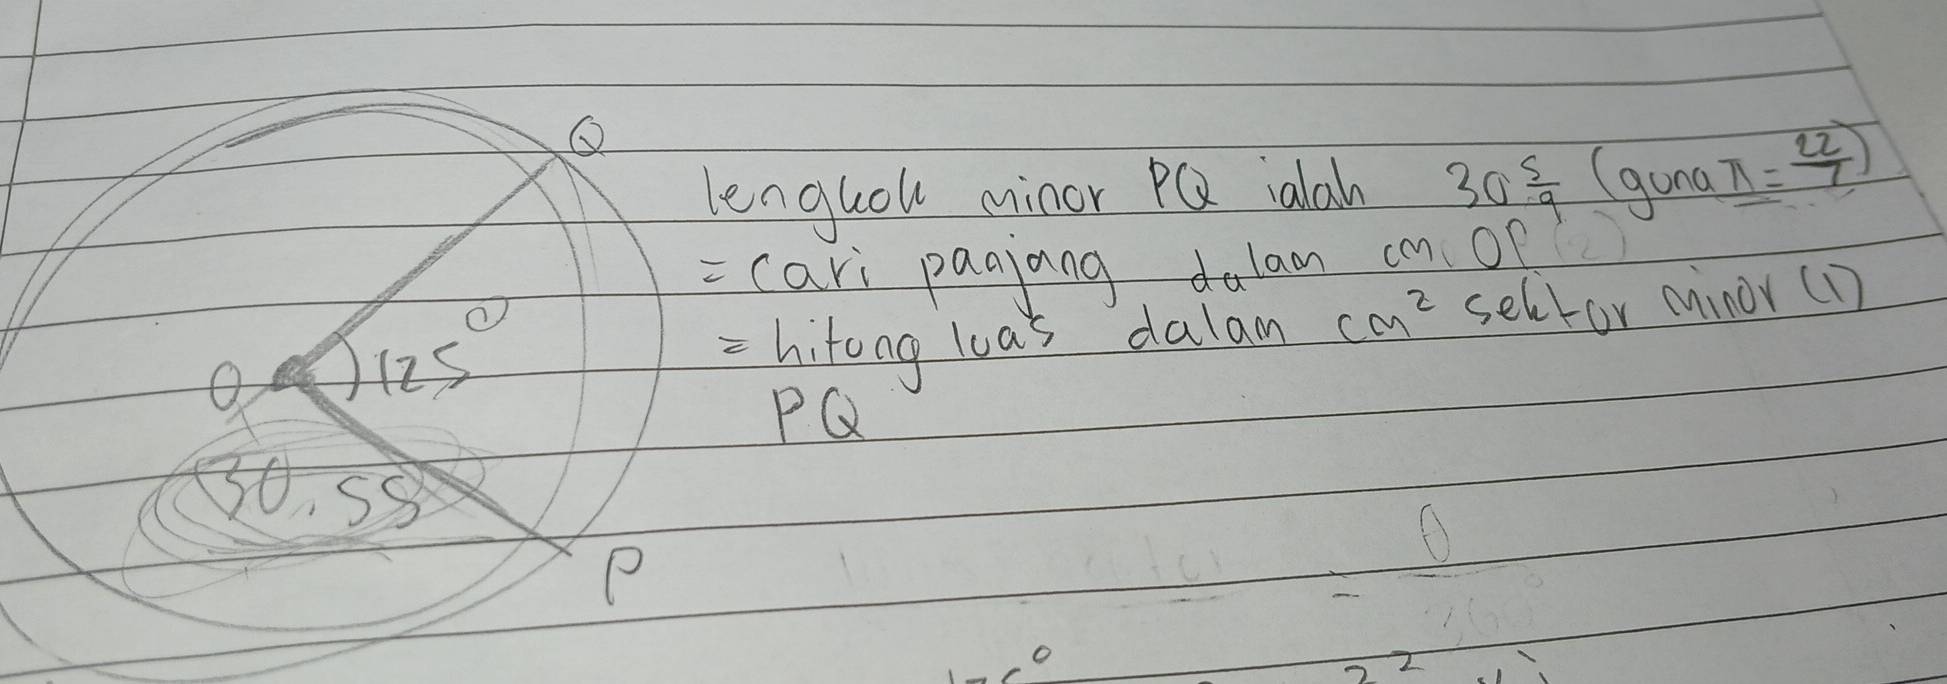 Q
lengkok minor PQ ialah 30 5/9 (guna π = 22/7)
= cari panjang dalam cm OP (2)
= hitung luas dalam cm² sektor minor (1)
PQ
O
125°
30.55
P
θ
=
360°